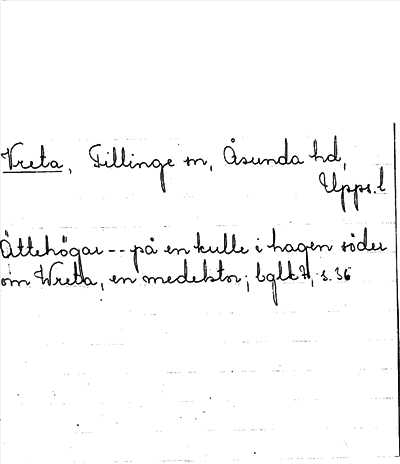 Vreta, Tillinge sn, Åsunda hd,
Upps. l
Ättehögar -- på en kulle i hagen söder
om Wretta, en medelstor; bglkH, s. 36